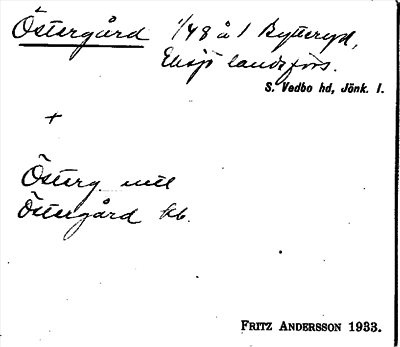 Östergård 1/48 å 1 Bytteryd,
Eksjö landsförs.
S. Vedbo hd, Jönk. l.
+
Österg mtl
Östergård kb.
FRITZ ANDERSSON 1933.